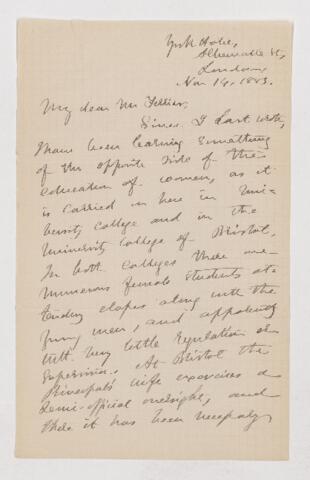 York Hotel,
Albemarle St,
London,
Nov 14, 1883.
My dear Mr
Since I last wrote,
I have been learning something
of the opposite side of the
education of women, as it
is carried on here in Uni-
versity College and in the
University College of Bristol.
In both Colleges there are
numerous female students at-
tending classes along with the
young men, and apparently
with very little regulation or
supervision. At Bristol the
Principal's wife exercises a
semi-official oversight, and
there it has been